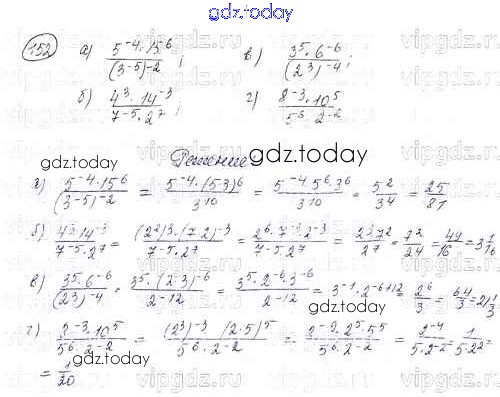 gdz.today
152 а) 5^-4·15^6/(3^-5)^-2; в) 3^5·6^-6/(2^3)^-4;
б) 4^3·14^-3/7^-5·2^7; г) 8^-3·10^5/5^6·2^-2
Решение
gdz.today gdz.today
а) 5^-4·15^6/(3^-5)^-2 = 5^-4·(5·3)^6/3^10 = 5^-4·5^6·3^6/3^10 = 5^2/3^4 = 25/81
б) 4^3·14^-3/7^-5·2^7 = (2^2)^3·(7·2)^-3/7^-5·2^7 = 2^6·7^-3·2^-3/7^-5·2^7 = 2^3·7^2/2^7 = 7^2/2^4 = 49/16 = 3 1/16
в) 3^5·6^-6/(2^3)^-4 = 3^5·(2·3)^-6/2^-12 = 3^5·2^-6·3^-6/2^-12 = 3^-1·2^-6+12 = 2^6/3 = 64/3 = 21 1/3
gdz.today gdz.today
г) 8^-3·10^5/5^6·2^-2 = (2^3)^-3·(2·5)^5/5^6·2^-2 = 2^-9·2^5·5^5/5^6·2^-2 = 2^-4/5·2^-2 = 1/5·2^2 =
= 1/20
gdz.today